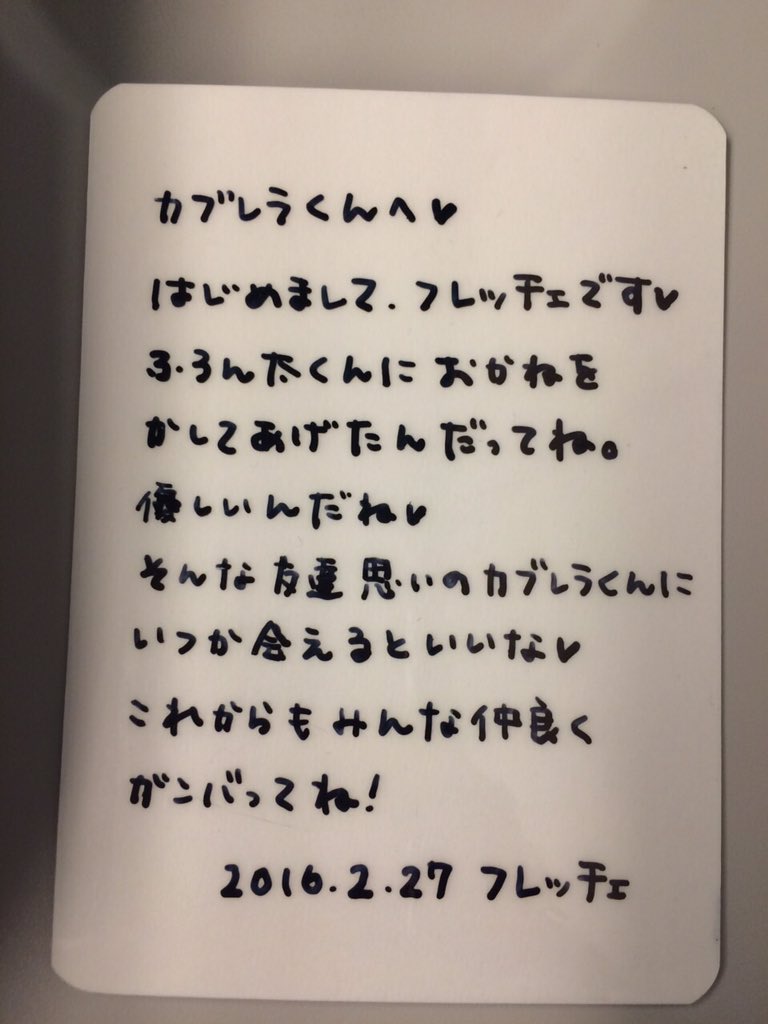 カブレラくんへ♥
はじめまして.フレッチェです♥
ふろん太くんに おかねを
かしてあげたんだってね。
優しいんだね♥
そんな友達思いのカブレラくんに
いつか会えるといいな♥
これからもみんな仲良く
ガンバってね!
2016.2.27 フレッチェ